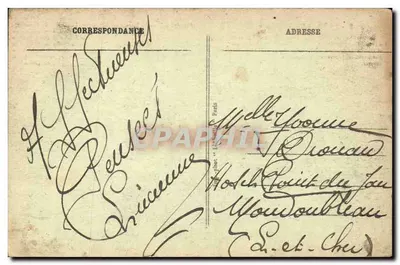 CORRESPONDANCE
ADRESSE
Affectueuses
Pensées
Lucienne
Melle Yvonne
Hotel Point du Jour
Mondoubleau
(L-et-Cher)
CARPHILA
Paris